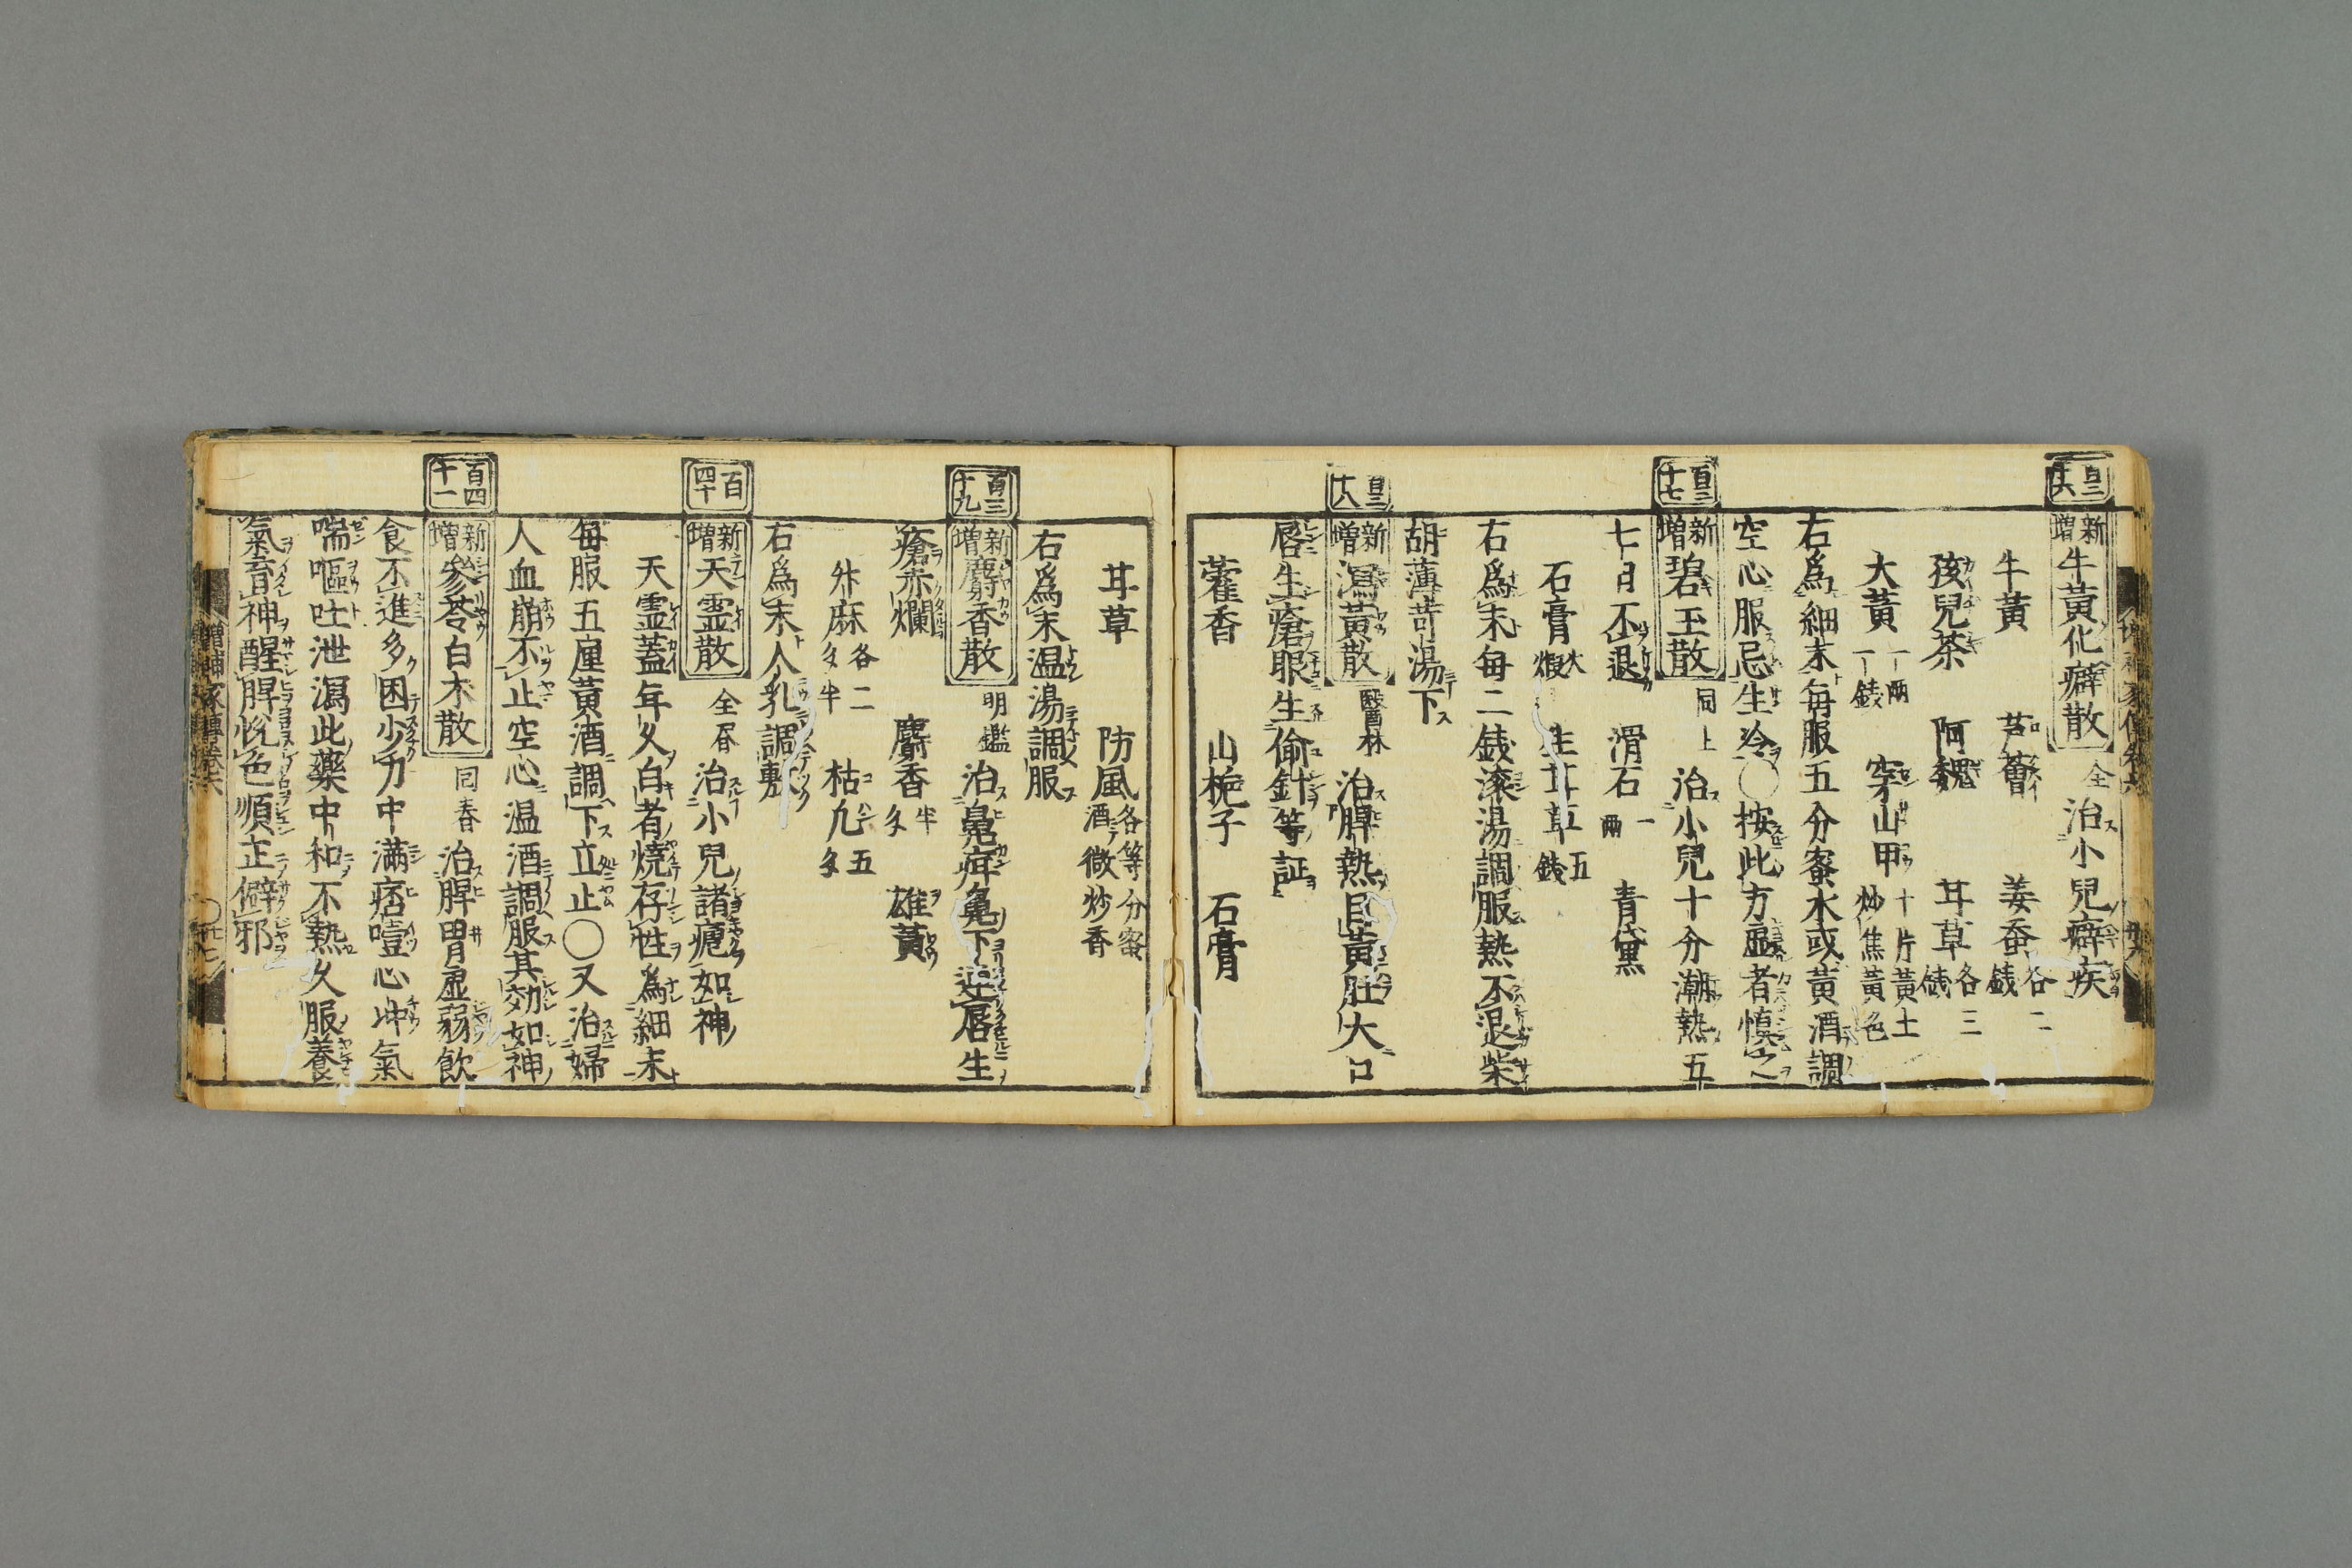 百三十六 新増 牛黄化癖散 全 治小兒癖疾
牛黄 芦薈 姜蚕 各二銭
孩兒茶 阿魏 耳草 各三銭
大黄 一両一銭 穿山甲 十片黄土炒焦黄色
右爲細末毎服五分蜜水或黄酒調
空心服忌生冷○按此方虚者慎之
百三十七 新増 碧玉散 同上 治小兒十分潮熱五
七日不退 滑石 一両 青黛
石膏 火煅 生耳草 五銭
右爲末毎二銭滚湯調服熱不退柴
胡薄苛湯下
百三十八 新増 瀉黄散 醫林 治脾熱目黄肚大口
唇生瘡眼生偷針等証
藿香 山梔子 石膏
耳草 防風 各等分蜜酒微炒香
右爲末温湯調服
百三十九 新増 麝香散 明鑑 治鼻疳鼻下連唇生
瘡赤爛 麝香 半匁 雄黄
升麻 各二匁半 枯凣 五匁
右爲末人乳調敷
百四十 新増 天霊散 全屠 治小兒諸瘧如神
天霊蓋年久白者燒存性爲細末
毎服五厘黄酒調下立止○又治婦
人血崩不止空心温酒調服其効如神
百四十一 新増 參苓白朮散 同春 治脾胃虚弱飲
食不進多困少力中滿痞噎心忡氣
喘嘔吐泄瀉此藥中和不熱久服養
氣育神醒脾悦色順正僻邪
増補家傳巻六